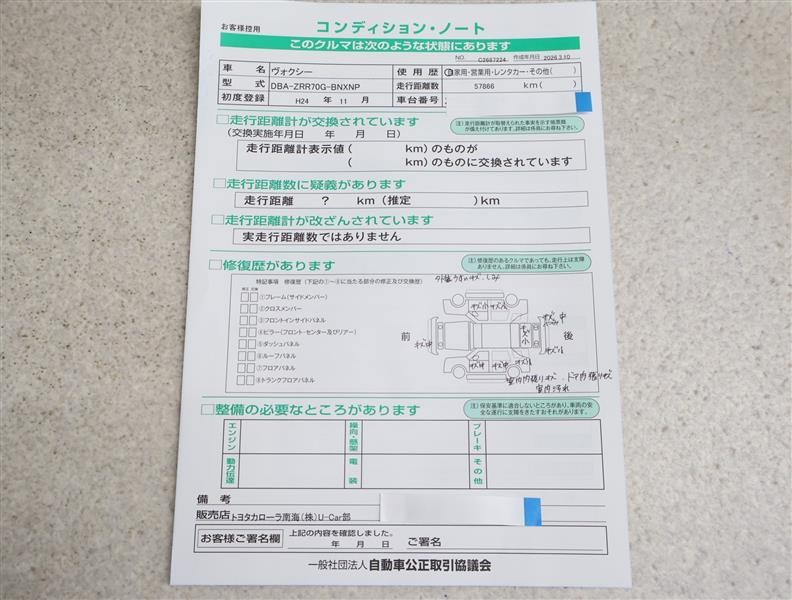 お客様控用
コンディション・ノート
このクルマは次のような状態にあります
NO. C2687224 作成年月日 2026.3.10
車名 ヴォクシー 使用歴 自家用・営業用・レンタカー・その他( )
型式 DBA-ZRR70G-BNXNP 走行距離数 57866 km( )
初度登録 H24 年 11 月 車台番号
□走行距離計が交換されています
(交換実施年月日 年 月 日)
注)走行距離計が取替えられた事実を示す帳票類
が備え付けてあります。詳細は係員にお尋ね下さい。
走行距離計表示値( km)のものが
( km)のものに交換されています
□走行距離数に疑義があります
走行距離 ? km(推定 )km
□走行距離計が改ざんされています
実走行距離数ではありません
□修復歴があります
注)修復歴のあるクルマであっても、走行上は支障
ありません。詳細は係員にお尋ね下さい。
特記事項 修復歴(下記の①~⑧に当たる部分の修正及び交換歴)
修正 交換
①フレーム(サイドメンバー)
②クロスメンバー
③フロントインサイドパネル
④ピラー(フロント・センター及びリアー)
⑤ダッシュパネル
⑥ルーフパネル
⑦フロアパネル
⑧トランクフロアパネル
前
後
キズ中
キズ小
室内内張りキズ、ドア内張りキズ
室内汚れ
□整備の必要なところがあります
注)保安基準に適合しないところがあり、車両の安
全な運行に支障をきたすおそれがあります。
エンジン 操向・懸架 ブレーキ
動力伝達 電装 その他
備考
販売店 トヨタカローラ南海(株)U-Car部
お客様ご署名欄 上記の内容を確認しました。
年 月 日 ご署名
一般社団法人 自動車公正取引協議会